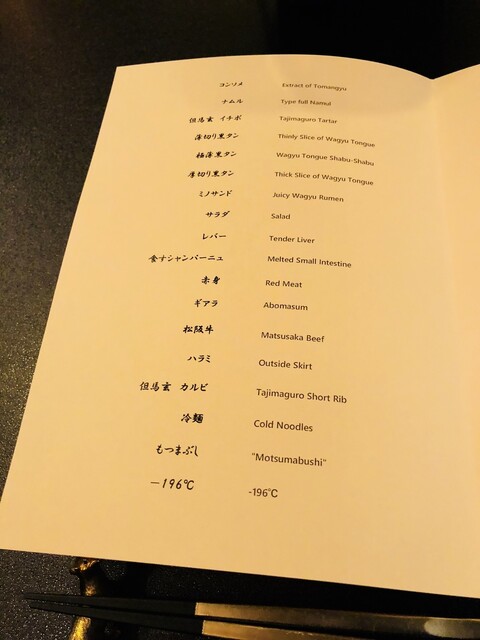 コンソメ Extract of Tomangyu
ナムル Type full Namul
但馬玄 イチボ Tajimaguro Tartar
薄切り黒タン Thinly Slice of Wagyu Tongue
極薄黒タン Wagyu Tongue Shabu-Shabu
厚切り黒タン Thick Slice of Wagyu Tongue
ミノサンド Juicy Wagyu Rumen
サラダ Salad
レバー Tender Liver
食すシャンパーニュ Melted Small Intestine
赤身 Red Meat
ギアラ Abomasum
松阪牛 Matsusaka Beef
ハラミ Outside Skirt
但馬玄 カルビ Tajimaguro Short Rib
冷麺 Cold Noodles
もつまぶし "Motsumabushi"
－196℃ -196℃